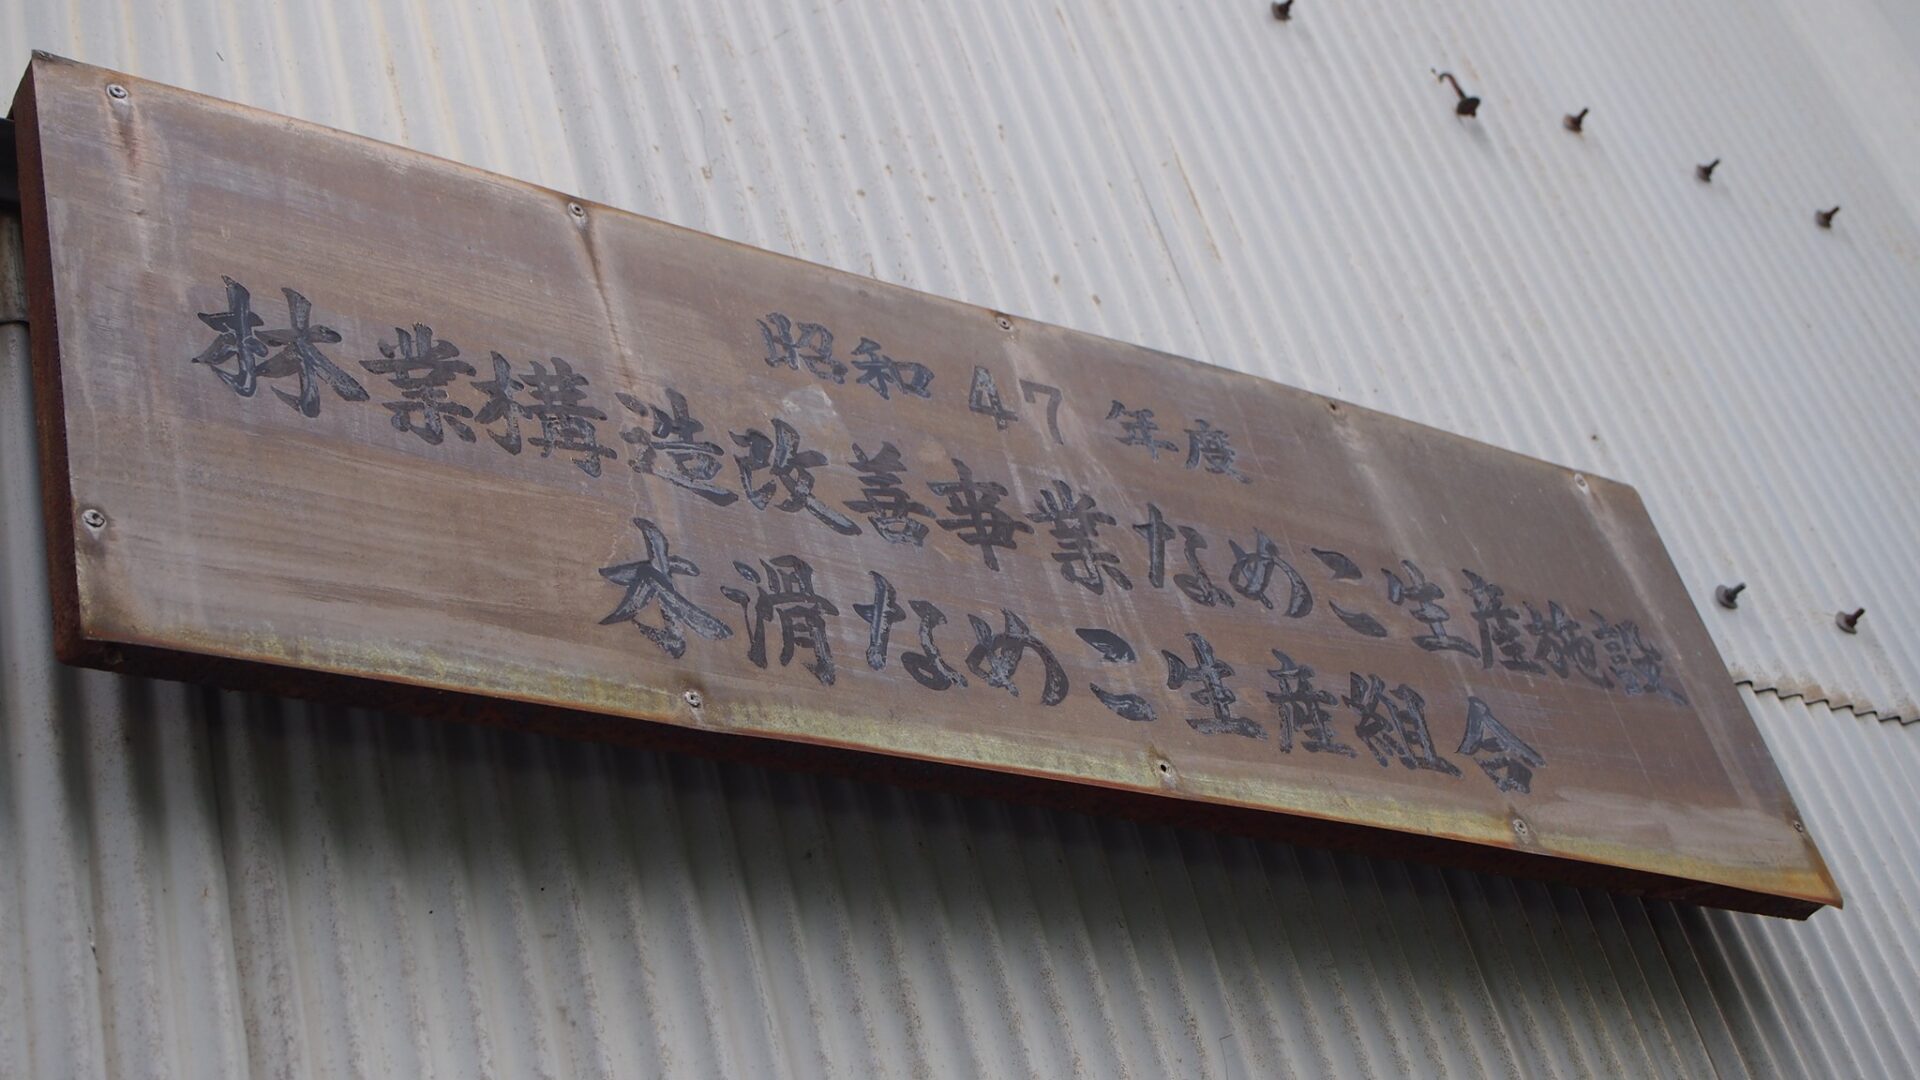 昭和47年度
林業構造改善事業なめこ生産施設
木滑なめこ生産組合